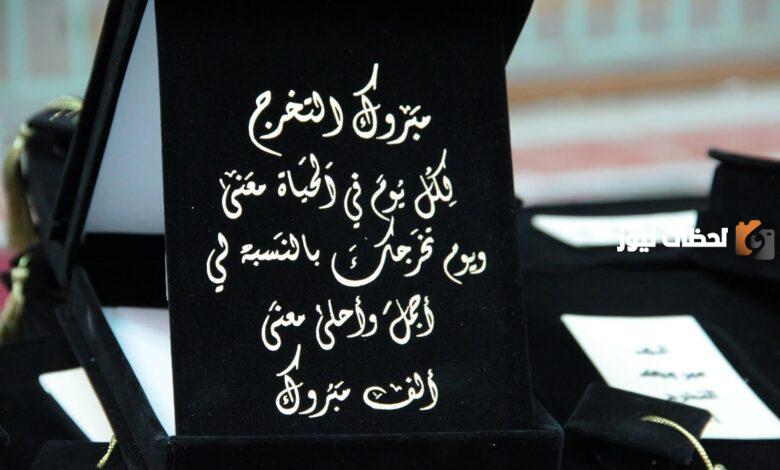 مبَرْوك التخرج
لِكُل يومَ في الحيَاة معَنى
ويوم تخَرجكَ بالنسَبة لي
أجملَ وأحلى معنىَ
ألف مبَرْوك
لحظات نيوز